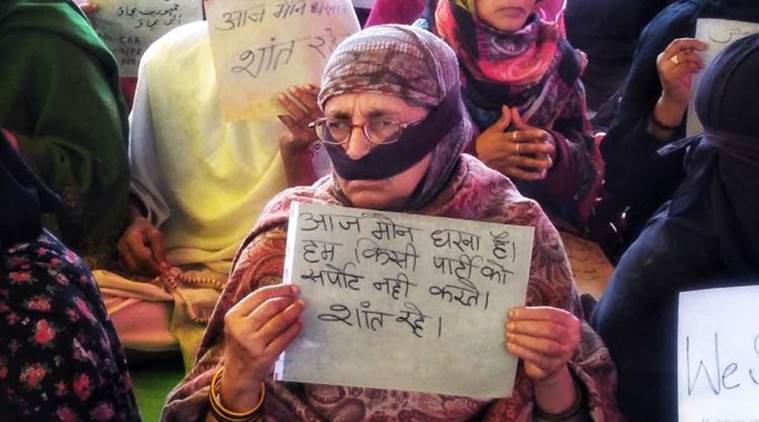 CAA
आज मौन धरना
शांत रहे
आज मौन धरना है।
हम किसी पार्टी को
सर्पोट नही करते।
शांत रहे।
We